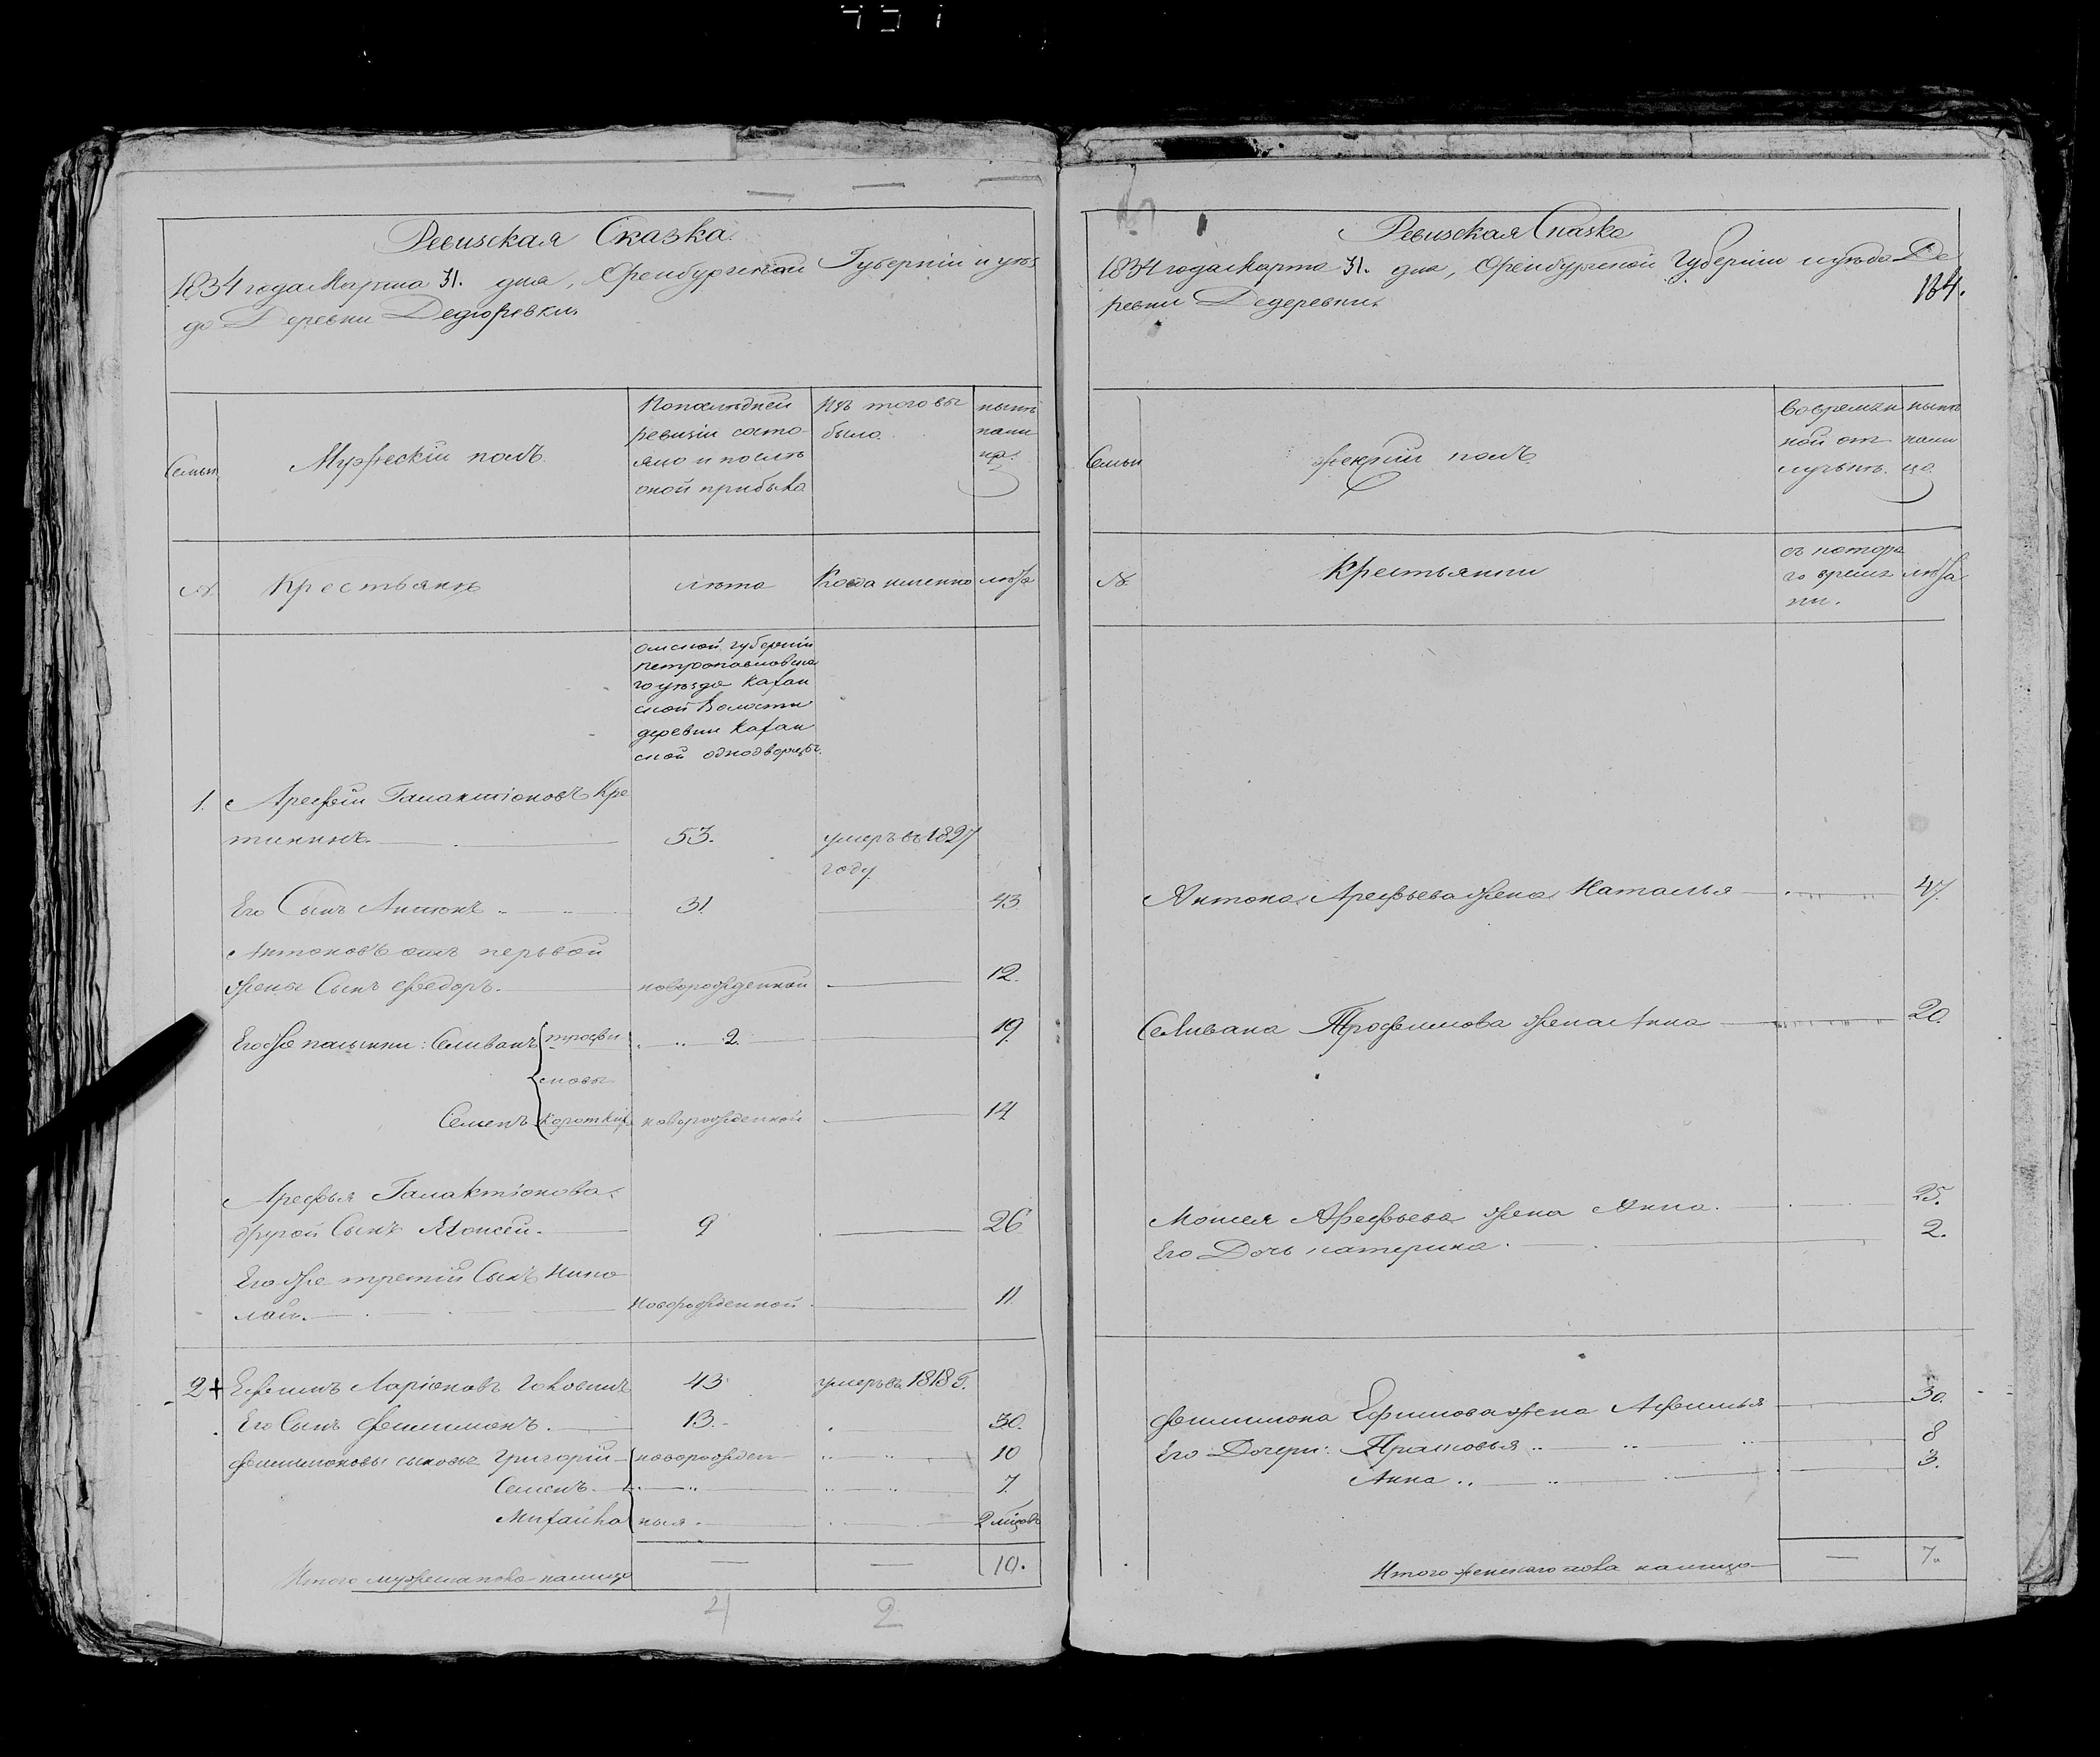 Ревизская Сказка.
1834 года Марта 31. дня, Оренбургской Губерніи и уѣз
да Деревни Дедюревки.
Семьи
Мужескій полъ.
По последней
ревизіи состо-
яло и послѣ
оной прибыло
Изъ того вы
было.
нынѣ
нали
цо.
№
Крестьянѣ
лѣта
Когда именно
лѣта
омской губерніи
петропавловска
го уѣзда
ской Волости
деревни
ской однодворцы.
1. Арефей Галактіоновъ Кре
тининъ.
53.
умеръ въ 1827
году
Его Сынъ Антонъ
31.
43
Антоновъ отъ первой
жены Сынъ Федоръ.
новорожденной
12.
Его же пасынки: Селиванъ
трофи
мовы
2.
19.
Семенъ
Короткіе
новорожденной
14
Арефья Галактіонова
другой Сынъ Моисей.
9
26
Его же третій Сынъ Нико
лай.
Новорожденной
11
2 + Ефимъ Ларіоновъ
43
умеръ въ 1818 г.
Его Сынъ Филимонъ.
13.
30.
Филимоновы сыновья Григорій
новорожден
10
Семенъ.
7.
Михайла
ныя
2 мѣсов
Итого мужеска пола налицо
10.
4
2
Ревизская Сказка
1834 года Марта 31. дня, Оренбургской Губерніи и уѣзда Де
184.
ревни Дедеревки.
Семьи
женскій полъ.
Во времян
ной от
лучьке.
нынѣ
нали
цо.
№
Крестьянки
съ котора
го време
ни.
лѣта
Антона Арефьева жена Наталья
47.
Селивана Трофимова жена Анна
20.
Моисея Арефьева жена Анна.
25.
Его Дочь катерина.
2.
Филимона Ефимова жена Афимья
30.
Его Дочери: Прасковья
8
Анна
3.
Итого женскаго пола налицо
7.